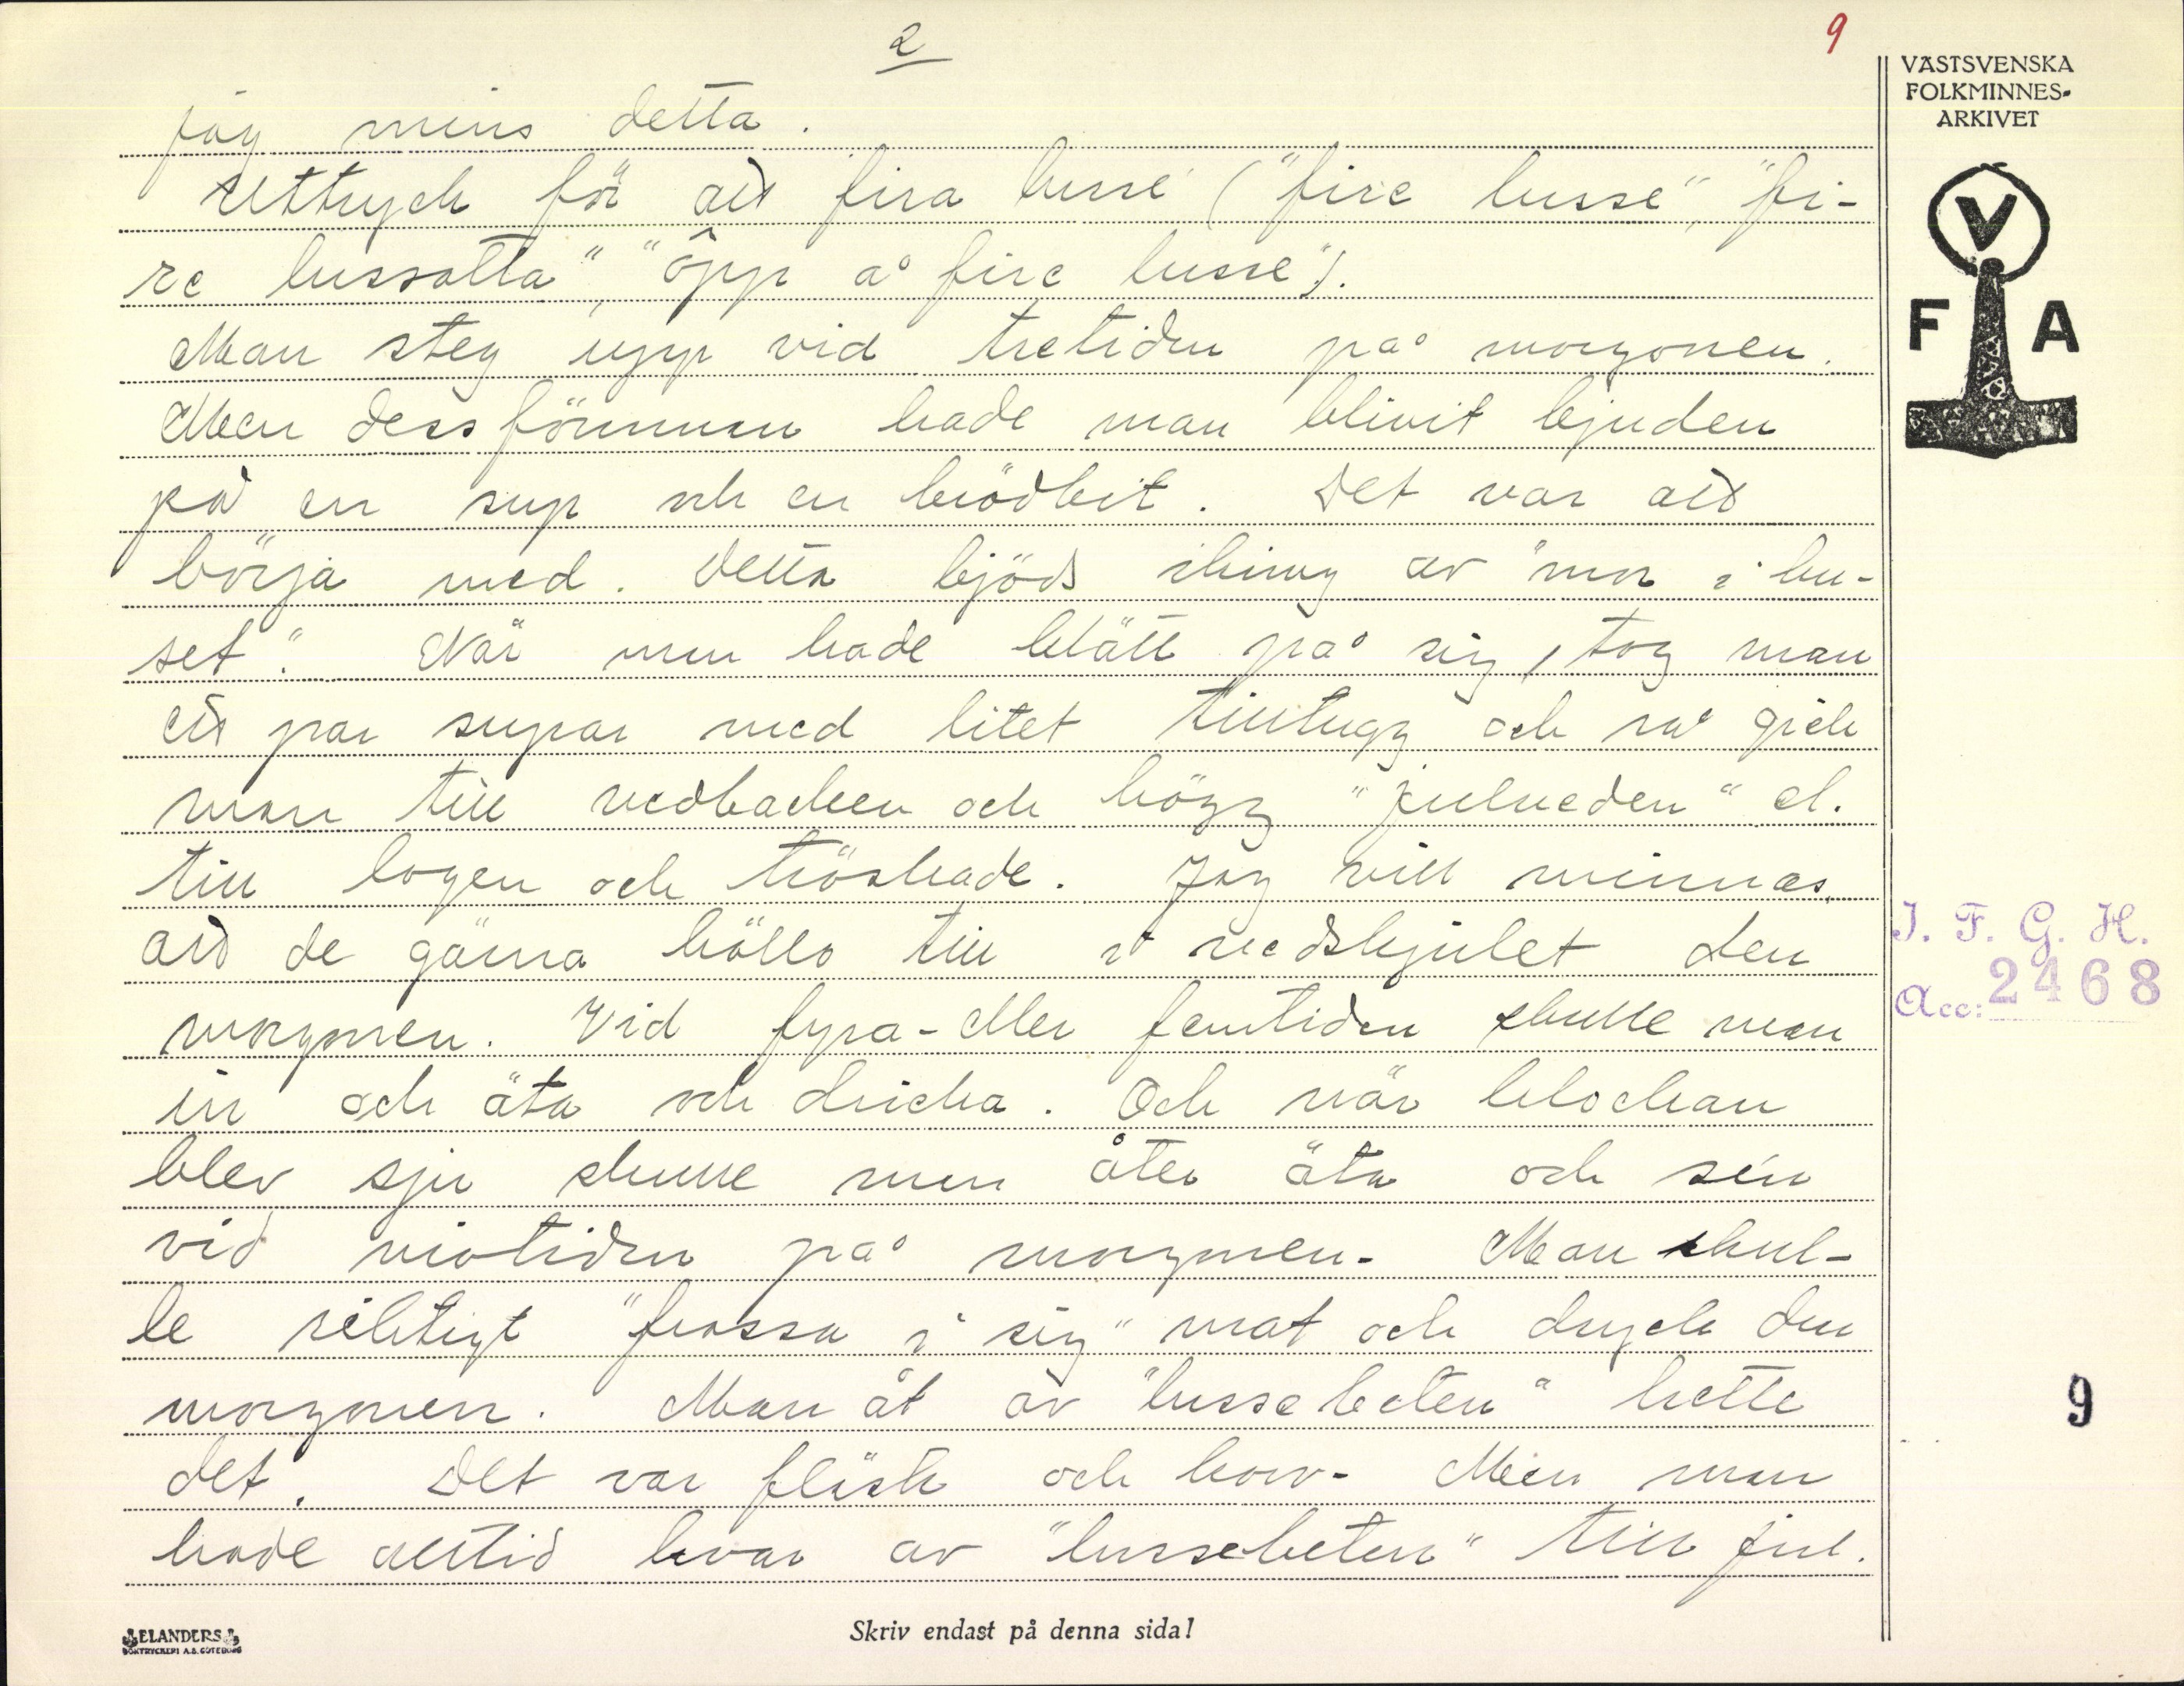 2
9
VÄSTSVENSKA
FOLKMINNES-
ARKIVET
V
F A
jag mins detta.
Uttryck för att fira lusse ("fire lusse", "fi-
re lussotta", "öpp å fire lusse").
Man steg upp vid tretiden på morgonen.
Men dessförinnan hade man blivit bjuden
på en sup och en brödbit. Det var att
börja med. Detta bjöds ikring av "mor i hu-
set". När man hade klätt på sig, tog man
ett par supar med litet tilltugg och så gick
man till vedbacken och högg "julveden" el.
till logen och tröskade. Jag vill minnas,
att de gärna höllo till i vedskjulet den
morgonen. Vid fyra-eller femtiden skulle man
in och äta och dricka. Och när klockan
blev sju skulle man åter äta och sen
vid niotiden på morgonen. Man skul-
le riktigt "frossa i sig" mat och dryck den
morgonen. Man åt av "lussebeten" hette
det. Det var fläsk och korv. Men man
hade alltid kvar av "lussebeten" till jul.
I. F. G. H.
Acc: 2468
9
ELANDERS
BOKTRYCKERI A.B. GÖTEBORG
Skriv endast på denna sida!